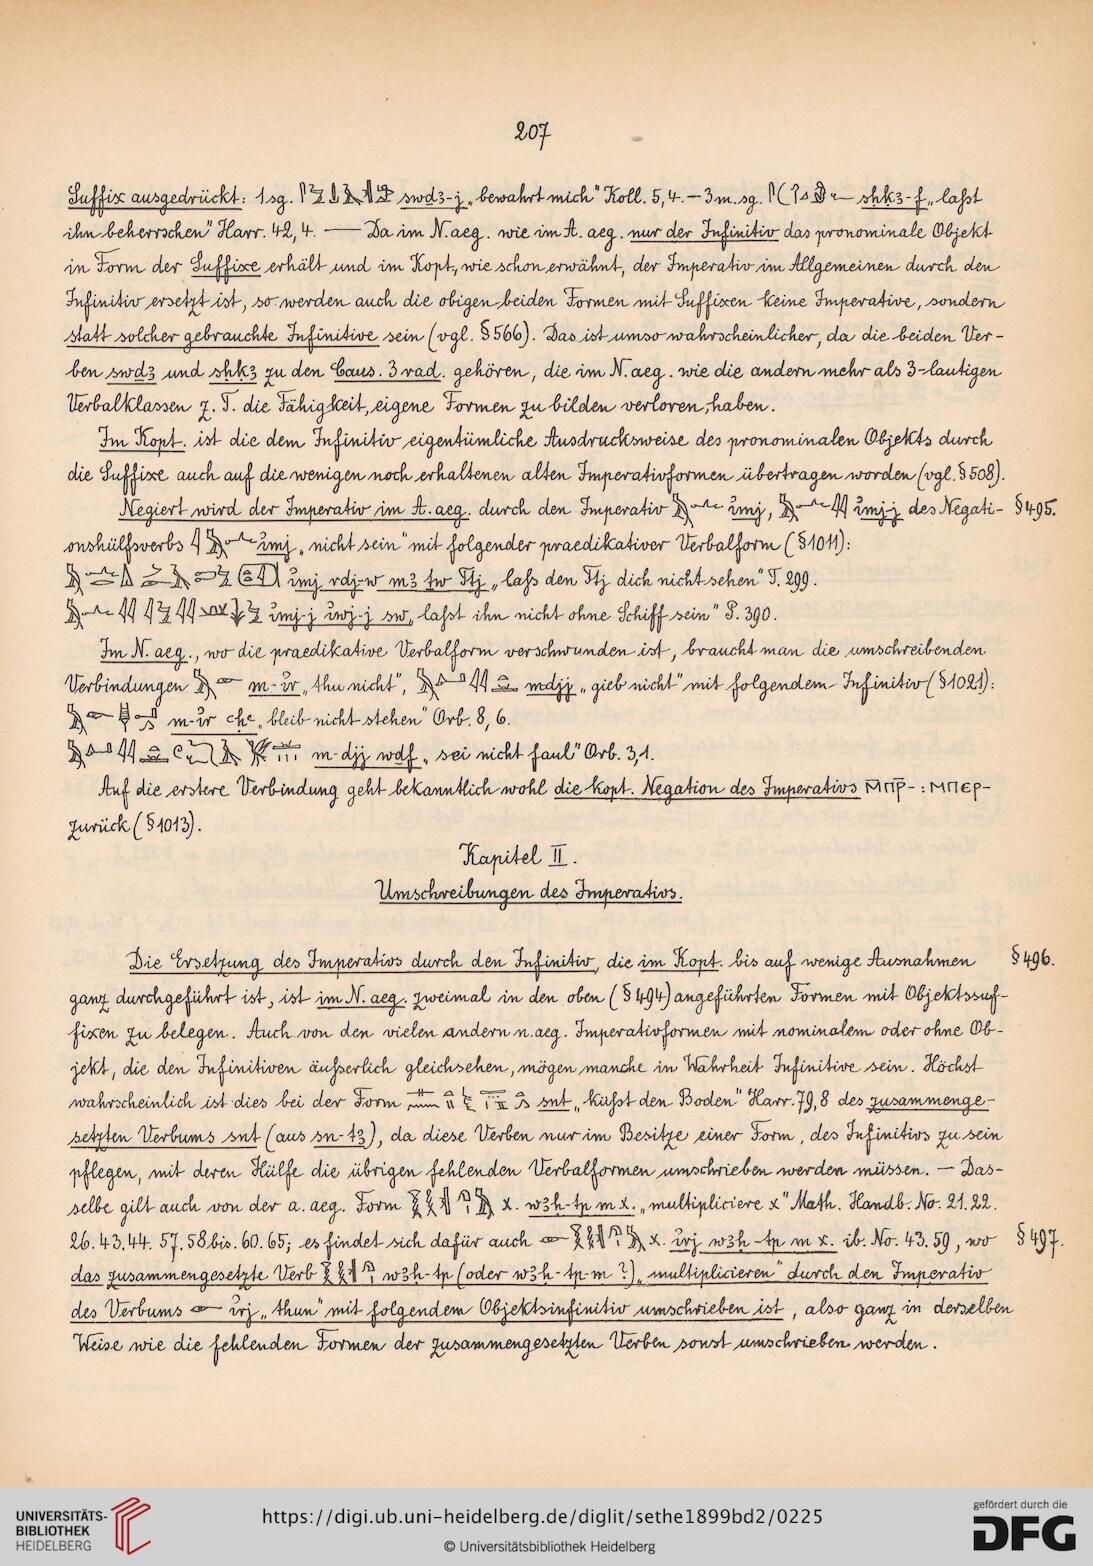 207
Suffix ausgedrückt: 1 sg. swdȝ-j „bewahrt mich" Koll. 5,4. — 3 m. sg. shkȝ-f „laßt
ihn beherrschen" Harr. 42,4. — Da im N. aeg. wie im A. aeg. nur der Infinitiv das pronominale Objekt
in Form der Suffixe erhält und im Kopt., wie schon erwähnt, der Imperativ im Allgemeinen durch den
Infinitiv ersetzt ist, so werden auch die obigen beiden Formen mit Suffixen keine Imperative, sondern
statt solcher gebrauchte Infinitive sein (vgl. § 566). Das ist umso wahrscheinlicher, da die beiden Ver-
ben swdȝ und shkȝ zu den Caus. 3 rad. gehören, die im N. aeg. wie die andern mehr als 3-lautigen
Verbalklassen z. T. die Fähigkeit, eigene Formen zu bilden verloren, haben.
Im Kopt. ist die dem Infinitiv eigentümliche Ausdrucksweise des pronominalen Objekts durch
die Suffixe auch auf die wenigen noch erhaltenen alten Imperativformen übertragen worden (vgl. § 508).
Negiert wird der Imperativ im A. aeg. durch den Imperativ ỉmj, ỉmj-j des Negati- § 495.
onshülfsverbs ỉmj „nicht sein" mit folgender praedikativer Verbalform (§ 1011):
ỉmj rdj-w mȝ tw Ttj „laß den Ttj dich nicht sehen" T. 299.
ỉmj-j ỉwj-j sw „laßt ihn nicht ohne Schiff sein" P. 390.
Im N. aeg., wo die praedikative Verbalform verschwunden ist, braucht man die umschreibenden
Verbindungen m-ỉr „thu nicht", m-djj „gieb nicht" mit folgendem Infinitiv (§ 1021):
m-ỉr ꜥḥꜥ „bleib nicht stehen" Orb. 8,6.
m-djj wdf „sei nicht faul" Orb. 3,1.
Auf die erstere Verbindung geht bekanntlich wohl die kopt. Negation des Imperativs ⲙ̅ⲡⲣ̅- : ⲙⲡⲉⲣ-
zurück (§ 1013).
Kapitel II.
Umschreibungen des Imperativs.
Die Ersetzung des Imperativs durch den Infinitiv, die im Kopt. bis auf wenige Ausnahmen § 496.
ganz durchgeführt ist, ist im N. aeg. zweimal in den oben (§ 494) angeführten Formen mit Objektssuf-
fixen zu belegen. Auch von den vielen andern n. aeg. Imperativformen mit nominalem oder ohne Ob-
jekt, die den Infinitiven äußerlich gleichsehen, mögen manche in Wahrheit Infinitive sein. Höchst
wahrscheinlich ist dies bei der Form snt „küßt den Boden" Harr. 79,8 des zusammenge-
setzten Verbums snt (aus sn-tȝ), da diese Verben nur im Besitze einer Form, des Infinitivs zu sein
pflegen, mit deren Hülfe die übrigen fehlenden Verbalformen umschrieben werden müssen. — Das-
selbe gilt auch von der a. aeg. Form x. wȝḥ-tp m x. „multipliciere x" Math. Handb. No. 21. 22.
26. 43. 44. 57. 58 bis. 60. 65; es findet sich dafür auch x. ỉrj wȝḥ-tp m x. ib. No. 43. 59, wo § 497.
das zusammengesetzte Verb wȝḥ-tp (oder wȝḥ-tp-m ?) „multiplicieren" durch den Imperativ
des Verbums ỉrj „thun" mit folgendem Objektsinfinitiv umschrieben ist, also ganz in derselben
Weise wie die fehlenden Formen der zusammengesetzten Verben sonst umschrieben werden.
UNIVERSITÄTS-
BIBLIOTHEK
HEIDELBERG
https://digi.ub.uni-heidelberg.de/diglit/sethe1899bd2/0225
© Universitätsbibliothek Heidelberg
gefördert durch die
DFG